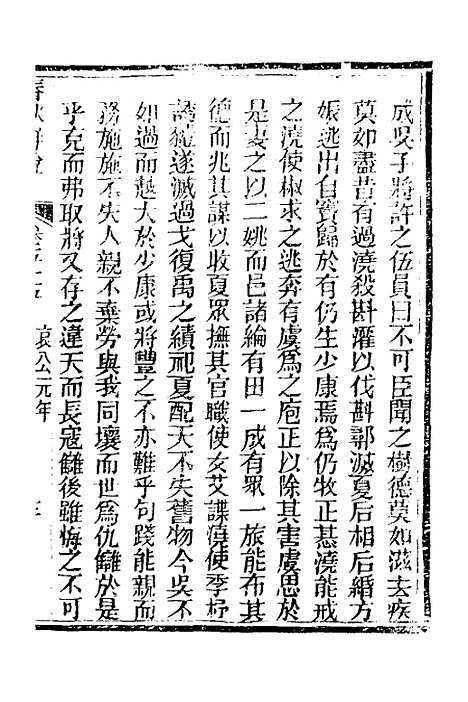 成吳子將許之伍員曰不可臣聞之樹德莫如滋去疾
莫如盡昔有過澆殺斟灌以伐斟鄩滅夏后相后緡方
娠逃出自竇歸於有仍生少康焉為仍牧正惎澆能戒
之澆使椒求之逃奔有虞為之庖正以除其害虞思於
是妻之以二姚而邑諸綸有田一成有眾一旅能布其
德而兆其謀以收夏眾撫其官職使女艾諜澆使季杼
誘豷遂滅過戈復禹之績祀夏配天不失舊物今吳不
如過而越大於少康或將豐之不亦難乎句踐能親而
務施施不失人親不棄勞與我同壤而世為仇讎於是
乎克而弗取將又存之違天而長寇讎後雖悔之不可
哀公元年